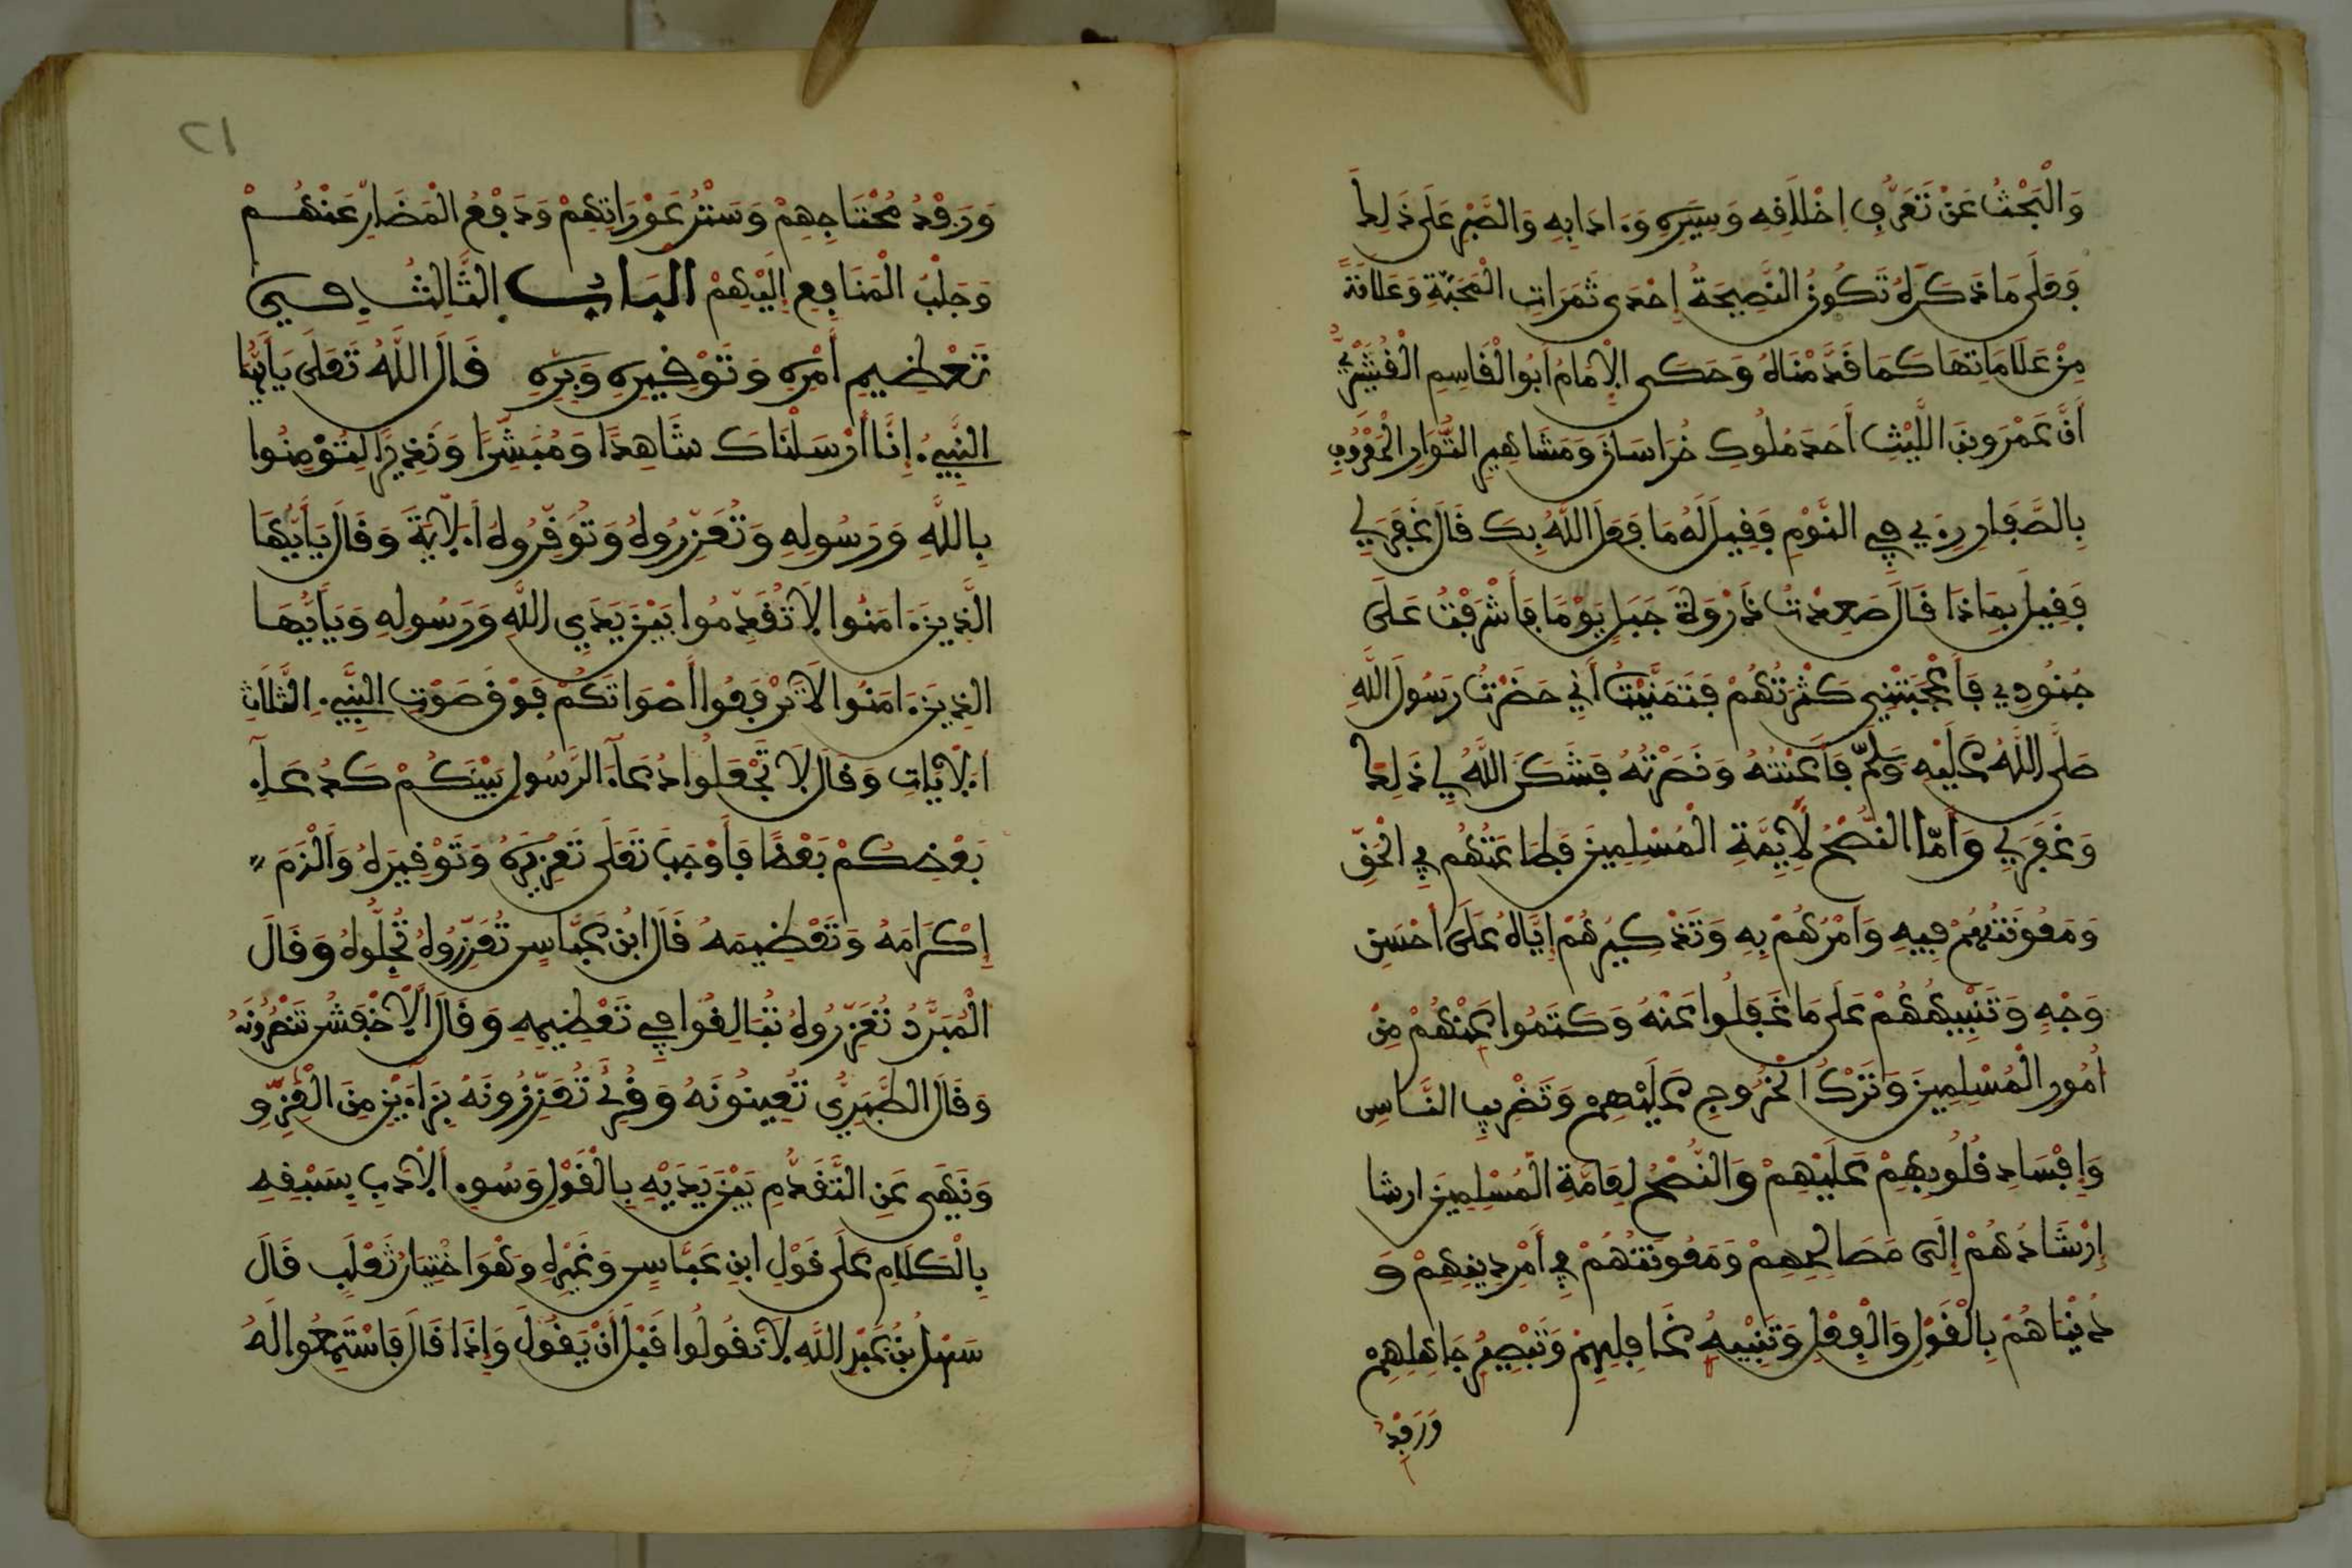 وَالْبَحْثُ عَنْ تَعَرُّفِ اخْلَافِهِ وَسِيَرِهِ وَءَادَابِهِ وَالصَّبْرِ عَلَى ذَلِكَ
وَعَلَى مَا ذَكَرَهُ تَكُونُ النَّصِيحَةُ إِحْدَى ثَمَرَاتِ الْمَحَبَّةِ وَعَلَامَةً
مِنْ عَلَامَاتِهَا كَمَا قَدَّمْنَاهُ وَحَكَى الْإِمَامُ أَبُو الْقَاسِمِ الْقُشَيْرِيُّ
أَنَّ عَمْرَو بْنَ اللَّيْثِ أَحَدَ مُلُوكِ خُرَاسَانَ وَمَشَاهِيرِ الثُّوَّارِ الْمَعْرُوفِ
بِالصَّفَّارِ رِءِيَ فِي النَّوْمِ فَقِيلَ لَهُ مَا فَعَلَ اللَّهُ بِكَ قَالَ غَفَرَ لِي
فَقِيلَ بِمَاذَا قَالَ صَعِدْتُ ذِرْوَةَ جَبَلٍ يَوْمًا فَأَشْرَفْتُ عَلَى
جُنُودِي فَأَعْجَبَتْنِي كَثْرَتُهُمْ فَتَمَنَّيْتُ أَنِّي حَضَرْتُ رَسُولَ اللَّهِ
صَلَّى اللَّهُ عَلَيْهِ وَسَلَّمَ فَأَعَنْتُهُ وَنَصَرْتُهُ فَشَكَرَ اللَّهُ لِي ذَلِكَ
وَغَفَرَ لِي وَأَمَّا النُّصْحُ لِأَيِمَّةِ الْمُسْلِمِينَ فَطَاعَتُهُمْ فِي الْحَقِّ
وَمَعُونَتُهُمْ فِيهِ وَأَمْرُهُمْ بِهِ وَتَذْكِيرُهُمْ إِيَّاهُ عَلَى أَحْسَنِ
وَجْهٍ وَتَنْبِيهُهُمْ عَلَى مَا غَفَلُوا عَنْهُ وَكَتَمُوا عَنْهُمْ مِنْ
أُمُورِ الْمُسْلِمِينَ وَتَرْكُ الْخُرُوجِ عَلَيْهِمْ وَتَضْرِيبِ النَّاسِ
وَإِفْسَادِ قُلُوبِهِمْ عَلَيْهِمْ وَالنُّصْحُ لِعَامَّةِ الْمُسْلِمِينَ ارشا
إِرْشَادُهُمْ إِلَى مَصَالِحِهِمْ وَمَعُونَتُهُمْ فِي أَمْرِ دِينِهِمْ وَ
دُنْيَاهُمْ بِالْقَوْلِ وَالْفِعْلِ وَتَنْبِيهُ غَافِلِهِمْ وَتَبْصِيرُ جَاهِلِهِمْ
وَرَفْدُ
٢١
وَرَفْدُ مُحْتَاجِهِمْ وَسَتْرُ عَوْرَاتِهِمْ وَدَفْعُ الْمَضَارِّ عَنْهُمْ
وَجَلْبُ الْمَنَافِعِ إِلَيْهِمْ الْبَابُ الثَّالِثُ فِي
تَعْظِيمِ أَمْرِهِ وَتَوْقِيرِهِ وَبِرِّهِ قَالَ اللَّهُ تَعَلَى يَأَيُّهَا
النَّبِيءُ إِنَّا أَرْسَلْنَاكَ شَاهِدًا وَمُبَشِّرًا وَنَذِيرًا لِتُؤْمِنُوا
بِاللَّهِ وَرَسُولِهِ وَتُعَزِّرُوهُ وَتُوَقِّرُوهُ الْأَيَةَ وَقَالَ يَأَيُّهَا
الَّذِينَ ءَامَنُوا لَا تُقَدِّمُوا بَيْنَ يَدَيِ اللَّهِ وَرَسُولِهِ وَيَأَيُّهَا
الَّذِينَ ءَامَنُوا لَا تَرْفَعُوا أَصْوَاتَكُمْ فَوْقَ صَوْتِ النَّبِيءِ الثَّلَاثَ
الْأَيَاتِ وَقَالَ لَا تَجْعَلُوا دُعَآءَ الرَّسُولِ بَيْنَكُمْ كَدُعَآءِ
بَعْضِكُمْ بَعْضًا فَأَوْجَبَ تَعَلَى تَعْزِيرَهُ وَتَوْقِيرَهُ وَأَلْزَمَ
إِكْرَامَهُ وَتَعْظِيمَهُ قَالَ ابْنُ عَبَّاسٍ تُعَزِّرُوهُ تُجِلُّوهُ وَقَالَ
الْمُبَرَّدُ تُعَزِّرُوهُ تُبَالِغُوا فِي تَعْظِيمِهِ وَقَالَ الْأَخْفَشُ تَنْصُرُونَهُ
وَقَالَ الطَّبَرِيُّ تُعِينُونَهُ وَقُرِئَ تُعَزِّزُونَهُ بِزَاءَيْنِ مِنَ الْعِزِّ وَ
وَنَهَى عَنِ التَّقَدُّمِ بَيْنَ يَدَيْهِ بِالْقَوْلِ وَسُوءِ الْأَدَبِ بِسَبْقِهِ
بِالْكَلَامِ عَلَى قَوْلِ ابْنِ عَبَّاسٍ وَغَيْرِهِ وَهُوَ اخْتِيَارُ ثَعْلَبٍ قَالَ
سَهْلُ بْنُ عَبْدِ اللَّهِ لَا تَقُولُوا قَبْلَ أَنْ يَقُولَ وَإِذَا قَالَ فَاسْتَمِعُوا لَهُ